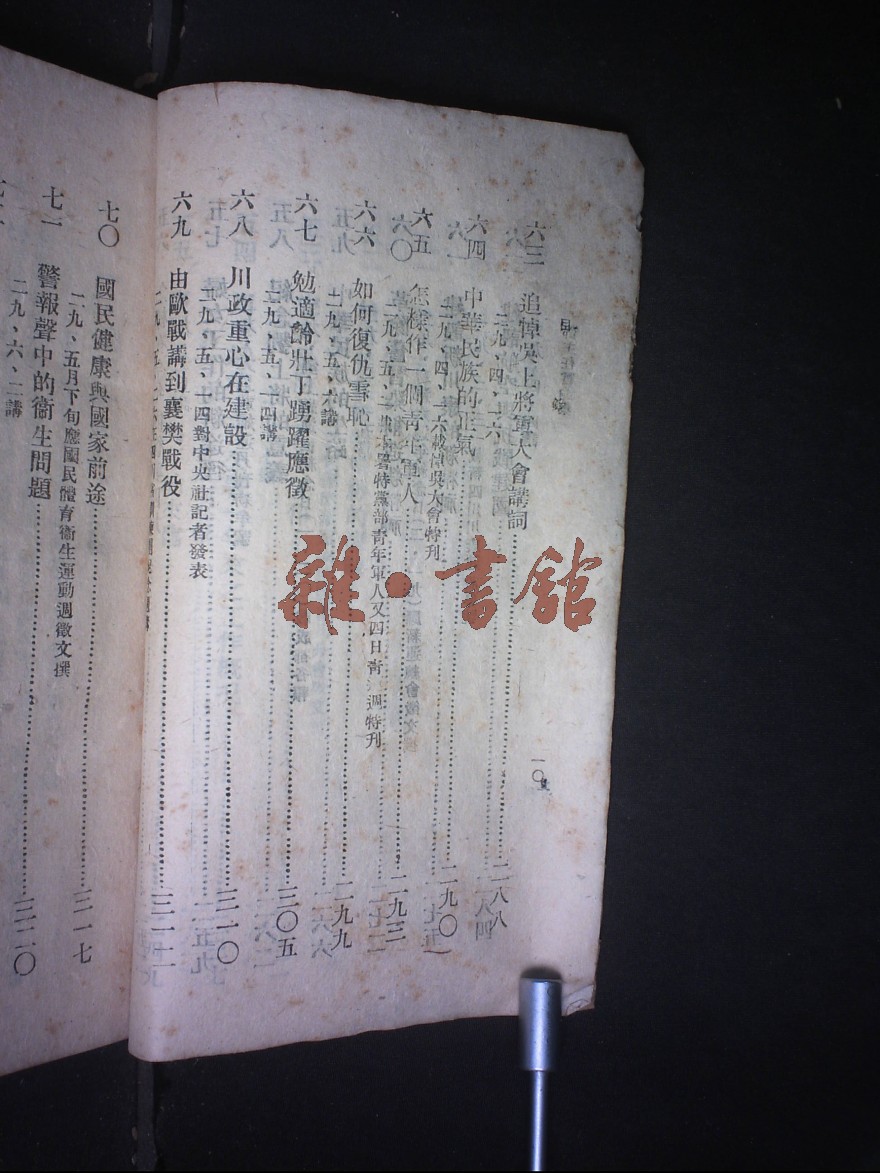 六三 追悼吳上將軍大會講詞……二八八
二九、四、二六
六四 中華民族的正氣……二九〇
二九、四、二六載悼吳大會特刊
六五 怎樣作一個青年軍人……二九三
二九、五、特黨部青年軍人又四日青 週特刊
六六 如何復仇雪恥……二九九
二九、五、六講
六七 勉適齡壯丁踴躍應徵……三〇五
二九、五、一四講
六八 川政重心在建設……三一〇
二九、五、一四對中央社記者發表
六九 由歐戰講到襄樊戰役……三一二
七〇 國民健康與國家前途……三一七
二九、五月下旬應國民體育衞生運動週徵文撰
七一 警報聲中的衞生問題……三二〇
二九、六、二講
一〇
雜·書館